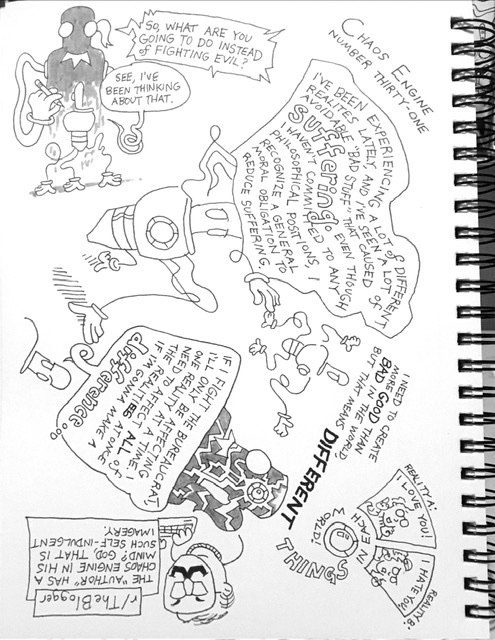 So, WHAT ARE YOU
GOING TO DO INSTEAD
of FIGHTING EVIL?
SEE, I'VE
BEEN THINKING
ABOUT THAT.
CHAOS ENGINE
NUMBER THIRTY-ONE
I'VE BEEN EXPERIENCING A LOT of DIFFERENT
REALITIES LATELY AND I'VE SEEN A LOT of
AVOIDABLE "BAD STUFF" THAT CAUSED
Suffering. EVEN THOUGH
HAVEN'T COMMITTED TO ANY
PHILOSOPHICAL POSITIONS, I
RECOGNIZE A GENERAL
MORAL OBLIGATION TO
REDUCE SUFFERING.
I NEED TO CREATE
MORE GOOD THAN
BAD IN THE WORLD,
BUT THAT MEANS
DIFFERENT
THINGS
IN EACH
WORLD!
REALITY A:
I LOVE YOU!
REALITY B:
I HATE YOU!
IF I FIGHT THE BUREAUCRAT,
I'LL ONLY BE AFFECTING
ONE REALITY AT A TIME. I
NEED TO AFFECT ALL of
THE REALITIES AT ONCE
IF I'M GONNA MAKE A
difference...
r/TheBlogger
THE "AUTHOR" HAS A
CHAOS ENGINE IN HIS
MIND? GOD, THAT IS
SUCH SELF-INDULGENT
IMAGERY.